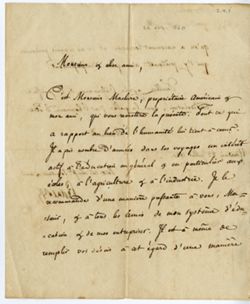 Monsieur & cher ami,
C'est Monsieur Maclure, propriétaire Américain &
mon ami, qui vous remettra la présente. Tout ce qui
a rapport au bien de l'humanité lui tient à cœur.
nombre d'années dans les voyages un intérêt
actif à l'éducation en général & en particulier aux
écoles, à l'agriculture & à l'industrie. Je le
recommandes d'une manière pressante à vous, Mon-
sieur, & à tous les amis de mon système d'édu-
cation & de mes entreprises. Il est à même de
remplir vos désirs à cet égard d'une manière